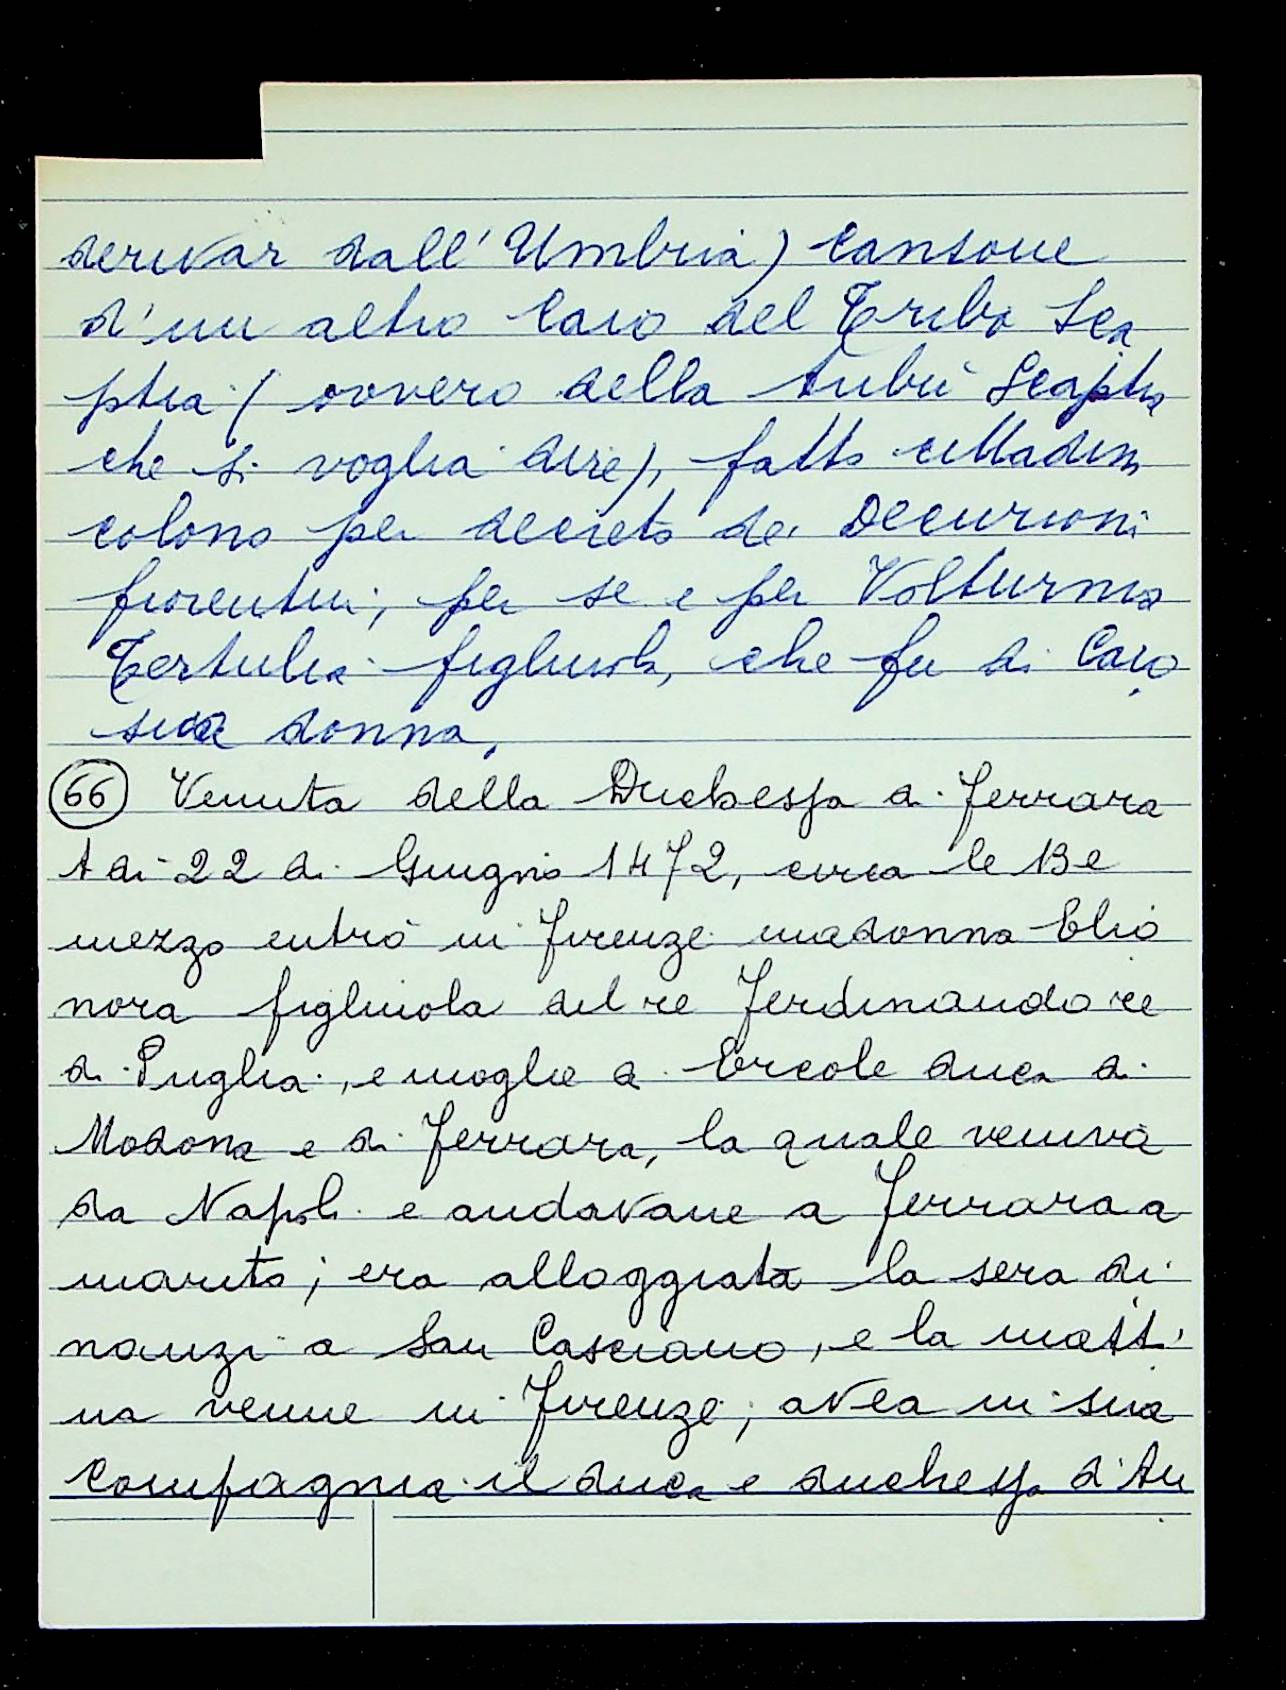 derivar dall'Umbria) Cansone
d'un altro Caio del Tribo Sca
ptia (ovvero della tribù Scaptia
che si voglia dire), fatto cittadin
colono per decreto dei Decurioni
fiorentini; per se e per Volturnia
Tertulia figliuola, che fu di Caio
sua donna.
66 Venuta della Duchessa di Ferrara
A di 22 di Giugno 1472, circa le 13 e
mezzo entrò in Firenze madonna Elio
nora figliuola del re Ferdinando re
di Puglia, e moglie di Ercole duca di
Modona e di Ferrara, la quale veniva
da Napoli e andavane a Ferrara a
marito; era alloggiata la sera di
nanzi a San Casciano, e la matti
na venne in Firenze; avea in sua
compagnia il duca e duchessa d'An